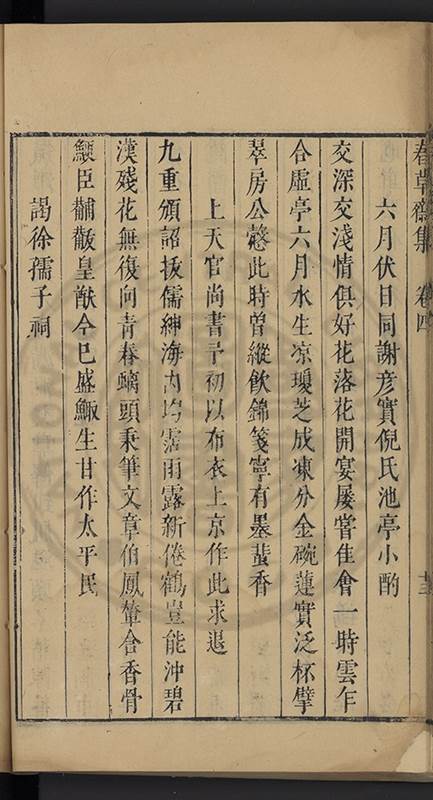 春草齋集 卷四 十三
六月伏日同謝彦實倪氏池亭小酌
交深交淺情俱好花落花開宴屢嘗佳會一時雲乍
合虛亭六月水生凉瓊芝成凍分金碗蓮實泛杯擘
翠房公憗此時曾縱飲錦箋寧有墨蜚香
上天官尚書予初以布衣上京作此求退
九重頒詔拔儒紳海内均霑雨露新倦鶴豈能沖碧
漢殘花無復向青春螭頭秉筆文章伯鳳輦含香骨
鯁臣黼黻皇猷今已盛鯫生甘作太平民
謁徐孺子祠